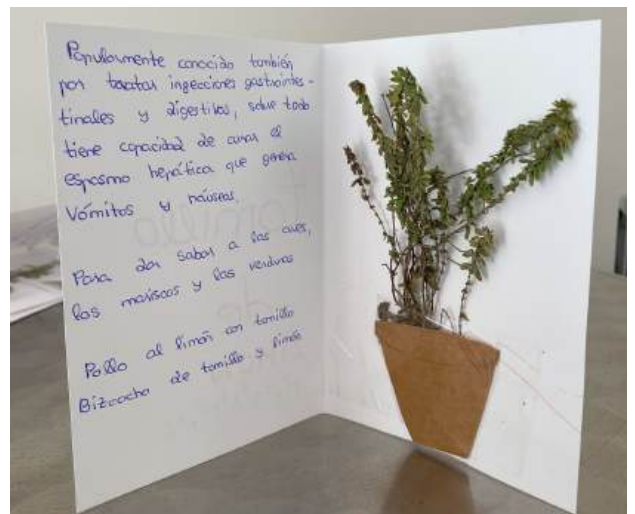 Popularmente conocido también
por tratar ingecciones gastrointes-
tinales y digestivas, sobre todo
tiene capacidad de curar el
espasmo hepática que genera
vómitos y náuseas.
Para dar sabor a las aves,
los mariscos y las verduras
Pollo al limón con tomillo
Bizcocho de tomillo y limón